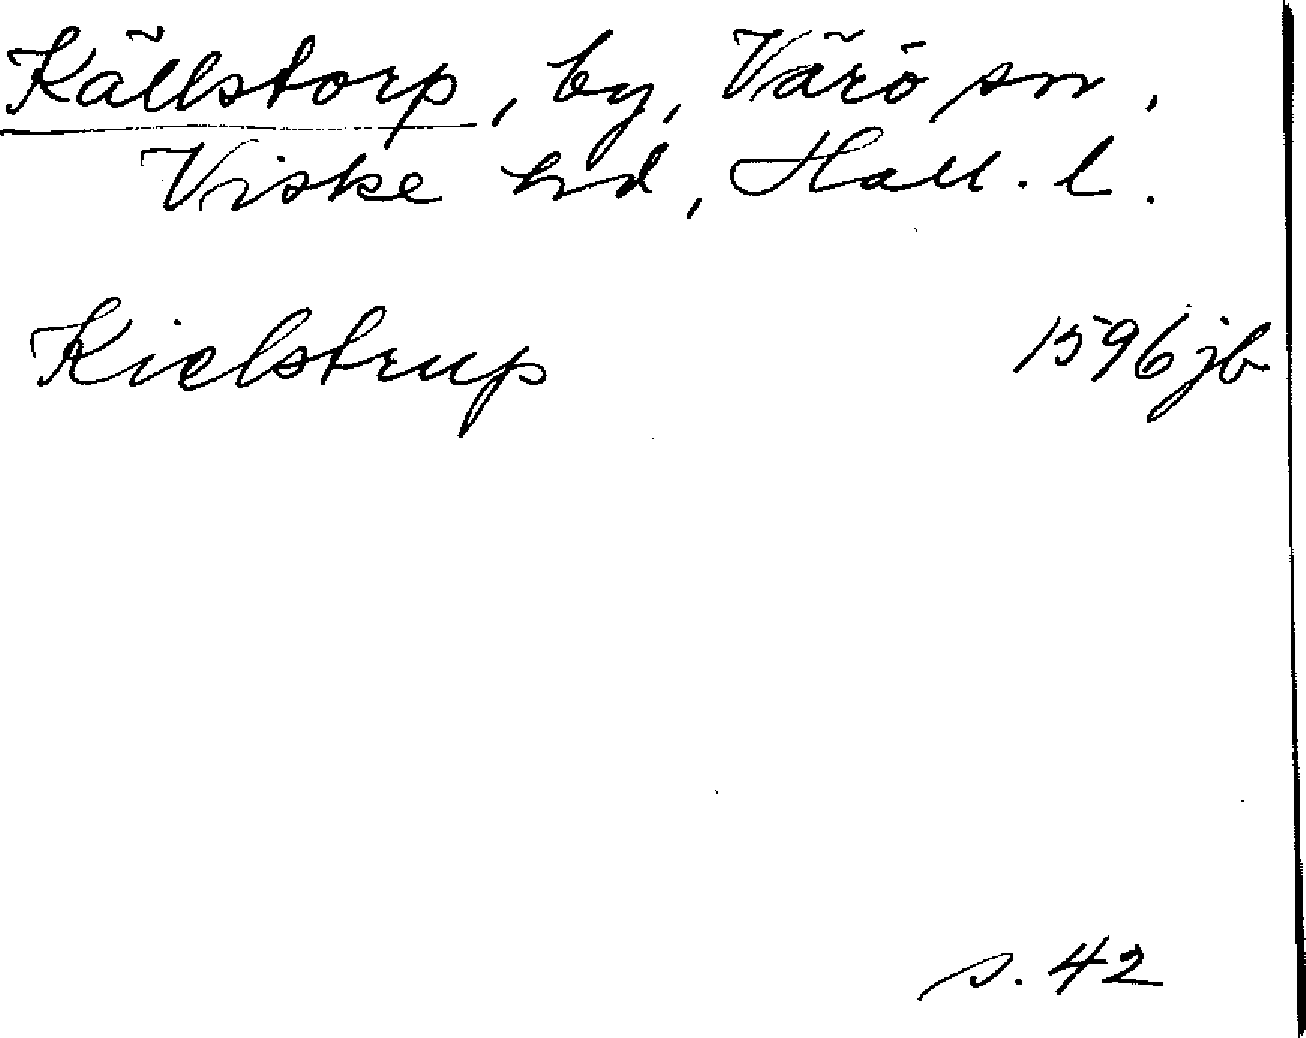 Källstorp, by, Värö sn,
Viske hd, Hall. l.
Kielstrup 1596 jb
s. 42